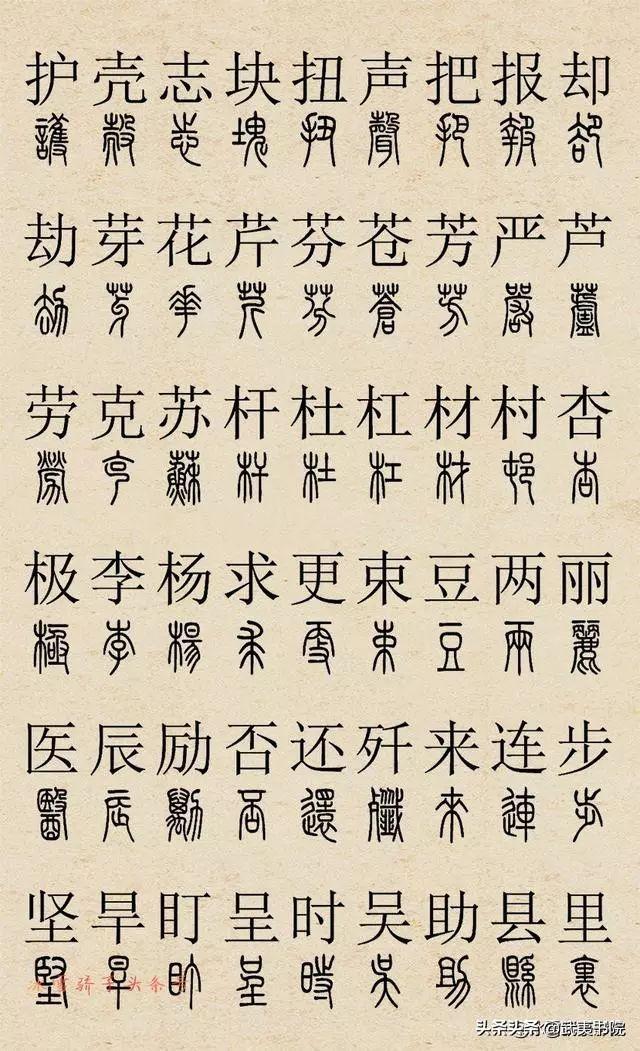 护壳志块扭声把报却
護殼志塊扭聲把報卻
劫芽花芹芬苍芳严芦
劫芽華芹芬蒼芳嚴蘆
劳克苏杆杜杠材村杏
勞克蘇杆杜杠材邨杏
极李杨求更束豆两丽
極李楊求更束豆兩麗
医辰励否还歼来连步
醫辰勵否還殲來連步
坚旱盯呈时吴助县里
堅旱盯呈時吳助縣裏
头条头条@武夷书院